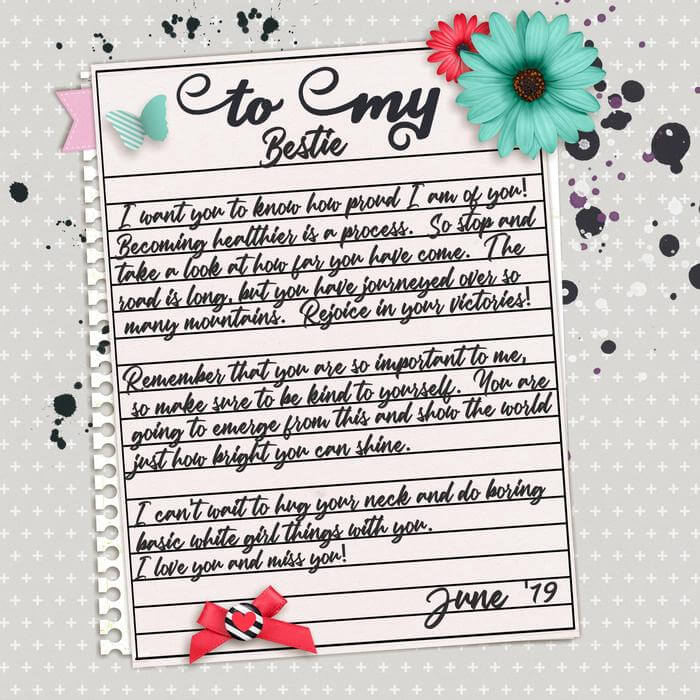 to my
Bestie
I want you to know how proud I am of you!
Becoming healthier is a process. So stop and
take a look at how far you have come. The
road is long, but you have journeyed over so
many mountains. Rejoice in your victories!
Remember that you are so important to me,
so make sure to be kind to yourself. You are
going to emerge from this and show the world
just how bright you can shine.
I can't wait to hug your neck and do boring
basic white girl things with you.
I love you and miss you!
June '19